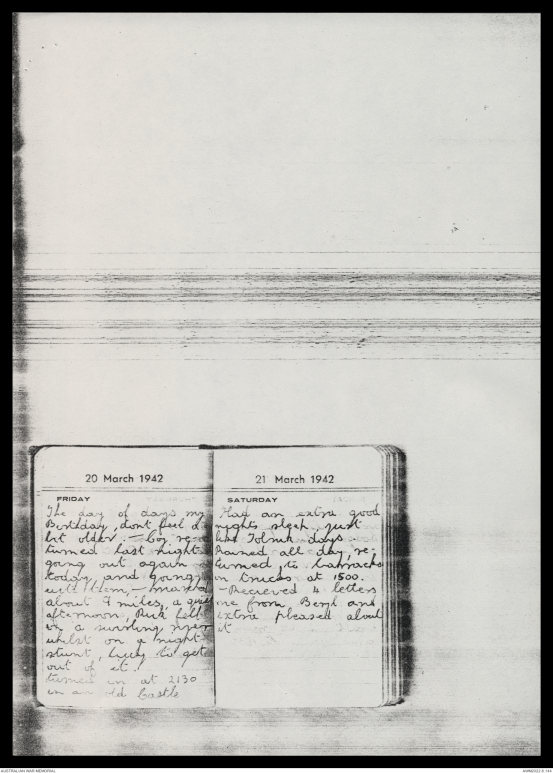 20 March 1942
FRIDAY
The day of days my
Birthday, dont feel a
bit older. - Coy re-
turned last night
going out again
today and going
with them, - marched
about 9 miles, a quiet
afternoon, Dick fell
in a swirling river
whilst on a night
stunt, lucky to get
out of it!
turned in at 2130
in an old Castle
21 March 1942
SATURDAY
Had an extra good
nights sleep, just
like Tobruk days
Rained all day, re-
turned to barracks
in trucks at 1500.
- Recieved 4 letters
one from Beryl and
extra pleased about
it
AUSTRALIAN WAR MEMORIAL